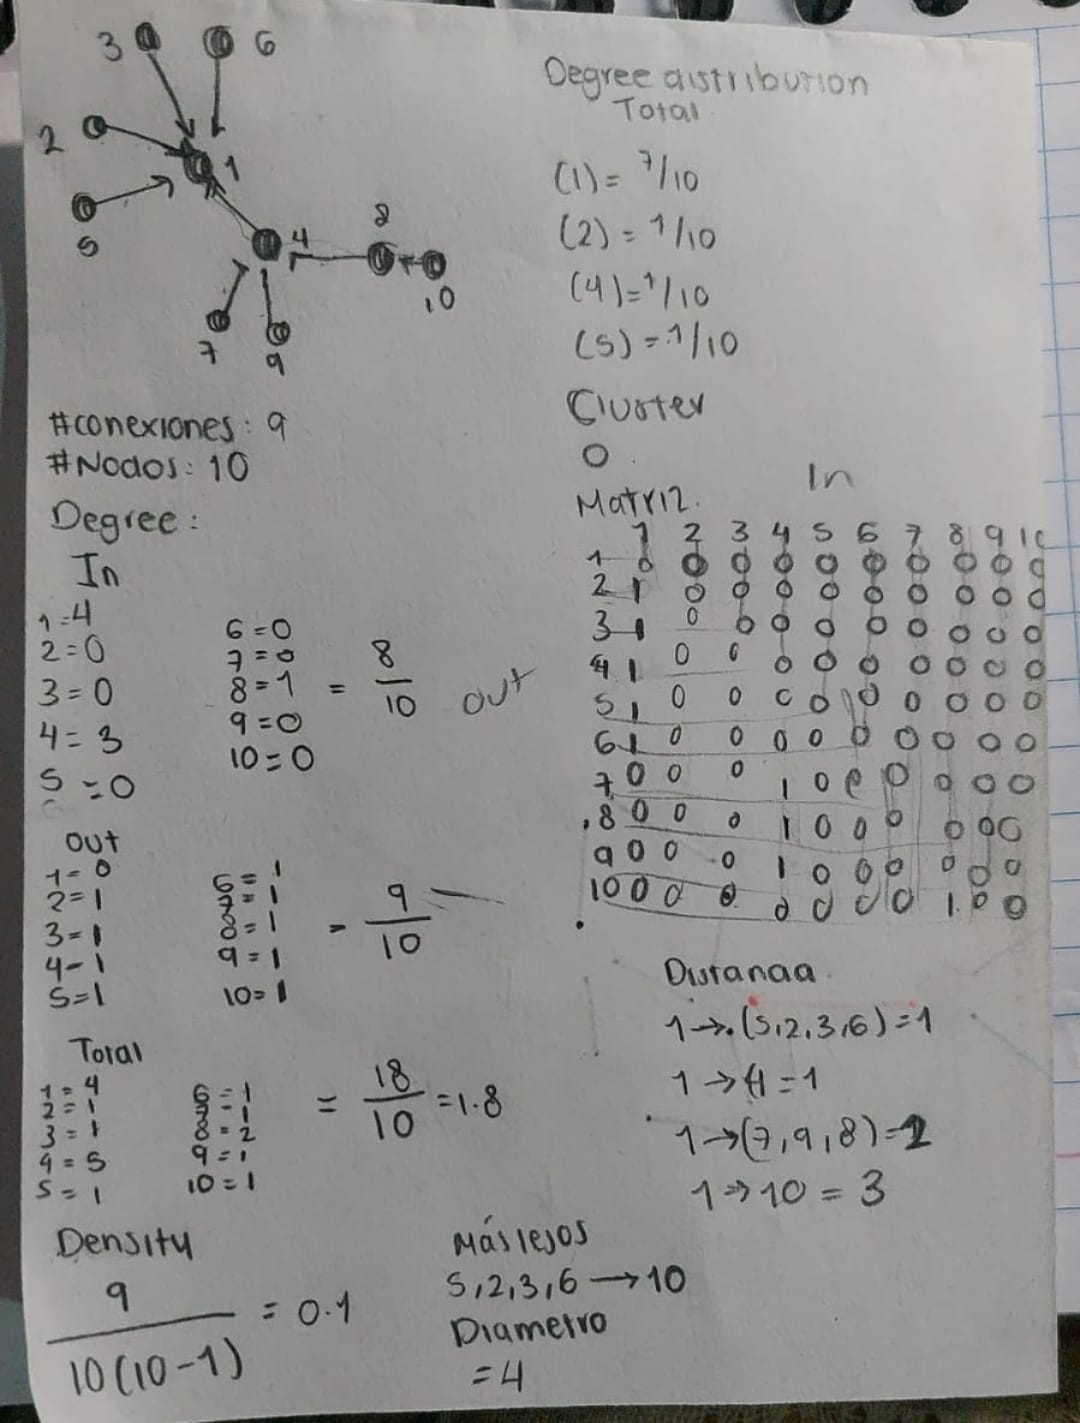 3 6
2 1
5 4 8
10
7 9
#conexiones: 9
#Nodos: 10
Degree:
In
1=4
2=0
3=0
4=3
5=0
6=0
7=0
8=1
9=0
10=0
= 8/10
Out
1=0
2=1
3=1
4-1
5=1
6=1
7=1
8=1
9=1
10=1
= 9/10
Total
1=4
2=1
3=1
4=5
5=1
6=1
7=1
8=2
9=1
10=1
= 18/10 =1.8
Density
9/10(10-1) = 0.1
Degree distribution
Total
(1)= 7/10
(2)= 1/10
(4)=1/10
(5)=1/10
Cluster
0
Matriz.
In
out
1 2 3 4 5 6 7 8 9 10
1 0 0 0 0 0 0 0 0 0 0
2 1 0 0 0 0 0 0 0 0 0
3 1 0 0 0 0 0 0 0 0 0
4 1 0 0 0 0 0 0 0 0 0
5 1 0 0 0 0 0 0 0 0 0
6 1 0 0 0 0 0 0 0 0 0
7 0 0 0 1 0 0 0 0 0 0
8 0 0 0 1 0 0 0 0 0 0
9 0 0 0 1 0 0 0 0 0 0
10 0 0 0 0 0 0 0 1 0 0
Distancia
1→(5,2,3,6)=1
1→4=1
1→(7,9,8)=2
1→10=3
Más lejos
5,2,3,6→10
Diametro
=4